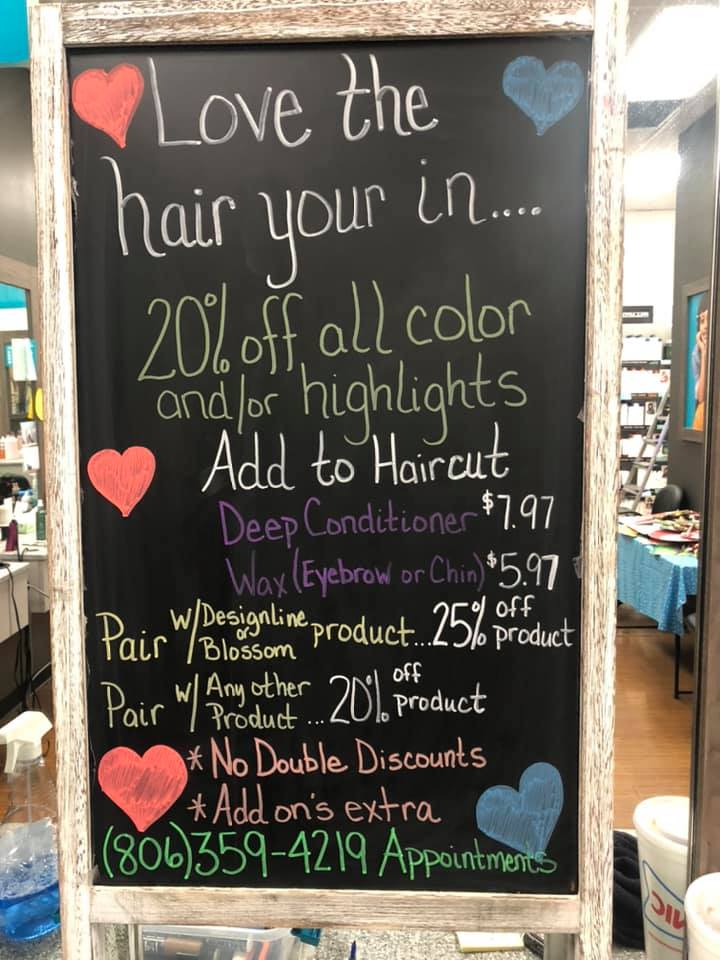 Love the
hair your in....
20% off all color
and/or highlights
Add to Haircut
Deep Conditioner $7.97
Wax (Eyebrow or Chin) $5.97
Pair w/ Designline or Blossom product...25% off product
Pair w/ Any other Product ...20% off product
* No Double Discounts
* Add on's extra
(806)359-4219 Appointments